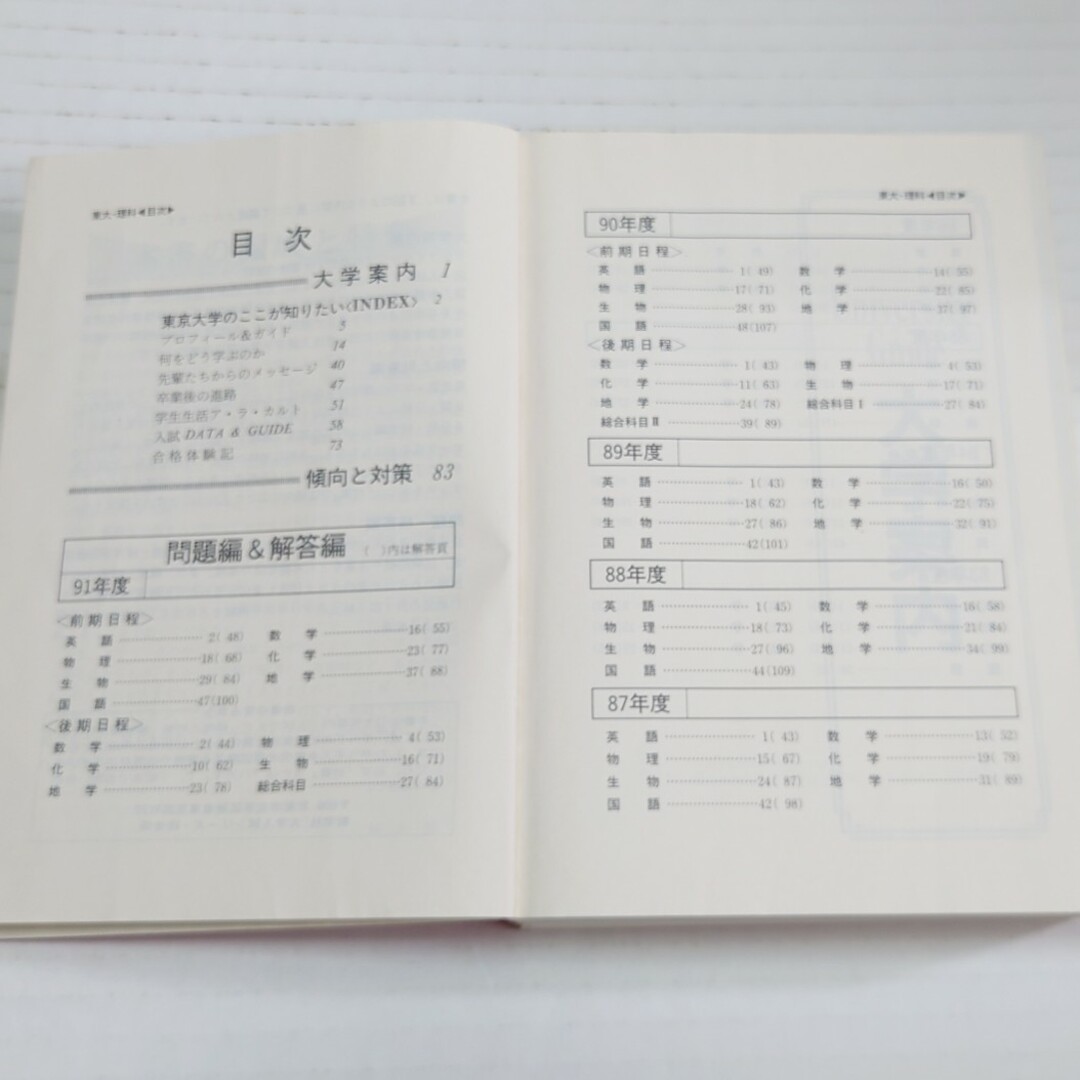 東大-理科◀目次▶
目 次
大学案内 1
東京大学のここが知りたい〈INDEX〉 2
プロフィール&ガイド 3
何をどう学ぶのか 14
先輩たちからのメッセージ 40
卒業後の進路 47
学生生活ア・ラ・カルト 51
入試 DATA & GUIDE 58
合格体験記 73
傾向と対策 83
問題編&解答編 ( )内は解答頁
91年度
〈前期日程〉
英 語 2( 48) 数 学 16( 55)
物 理 18( 68) 化 学 23( 77)
生 物 29( 84) 地 学 37( 88)
国 語 47(100)
〈後期日程〉
数 学 2( 44) 物 理 4( 53)
化 学 10( 62) 生 物 16( 71)
地 学 23( 78) 総合科目 27( 84)
東大-理科◀目次▶
90年度
〈前期日程〉
英 語 1( 49) 数 学 14( 55)
物 理 17( 71) 化 学 22( 85)
生 物 28( 93) 地 学 37( 97)
国 語 48(107)
〈後期日程〉
数 学 1( 43) 物 理 4( 53)
化 学 11( 63) 生 物 17( 71)
地 学 24( 78) 総合科目Ⅰ 27( 84)
総合科目Ⅱ 39( 89)
89年度
英 語 1( 43) 数 学 16( 50)
物 理 18( 62) 化 学 22( 75)
生 物 27( 86) 地 学 32( 91)
国 語 42(101)
88年度
英 語 1( 45) 数 学 16( 58)
物 理 18( 73) 化 学 21( 84)
生 物 27( 96) 地 学 34( 99)
国 語 44(109)
87年度
英 語 1( 43) 数 学 13( 52)
物 理 15( 67) 化 学 19( 79)
生 物 24( 87) 地 学 31( 89)
国 語 42( 98)